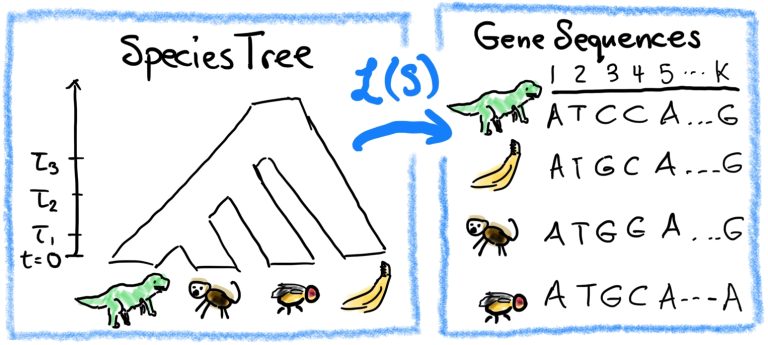 Species Tree
τ3
τ2
τ1
t=0
L(S)
Gene Sequences
1 2 3 4 5 ... K
A T C C A ... G
A T G C A ... G
A T G G A ... G
A T G C A ... A